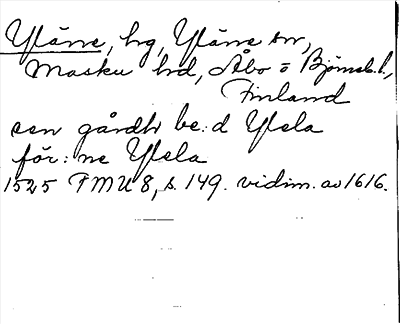 Yläne, hg, Yläne sn,
Masku hd, Åbo o Björneb. l.,
Finland
een gårdh be:d Ylela
för: ne Ylela
1525 FMU 8, s. 149. vidim. av 1616.